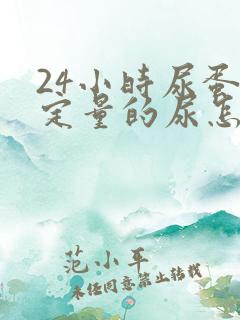 24小时尿蛋
定量的尿怎
范小平
未经同意禁止转载